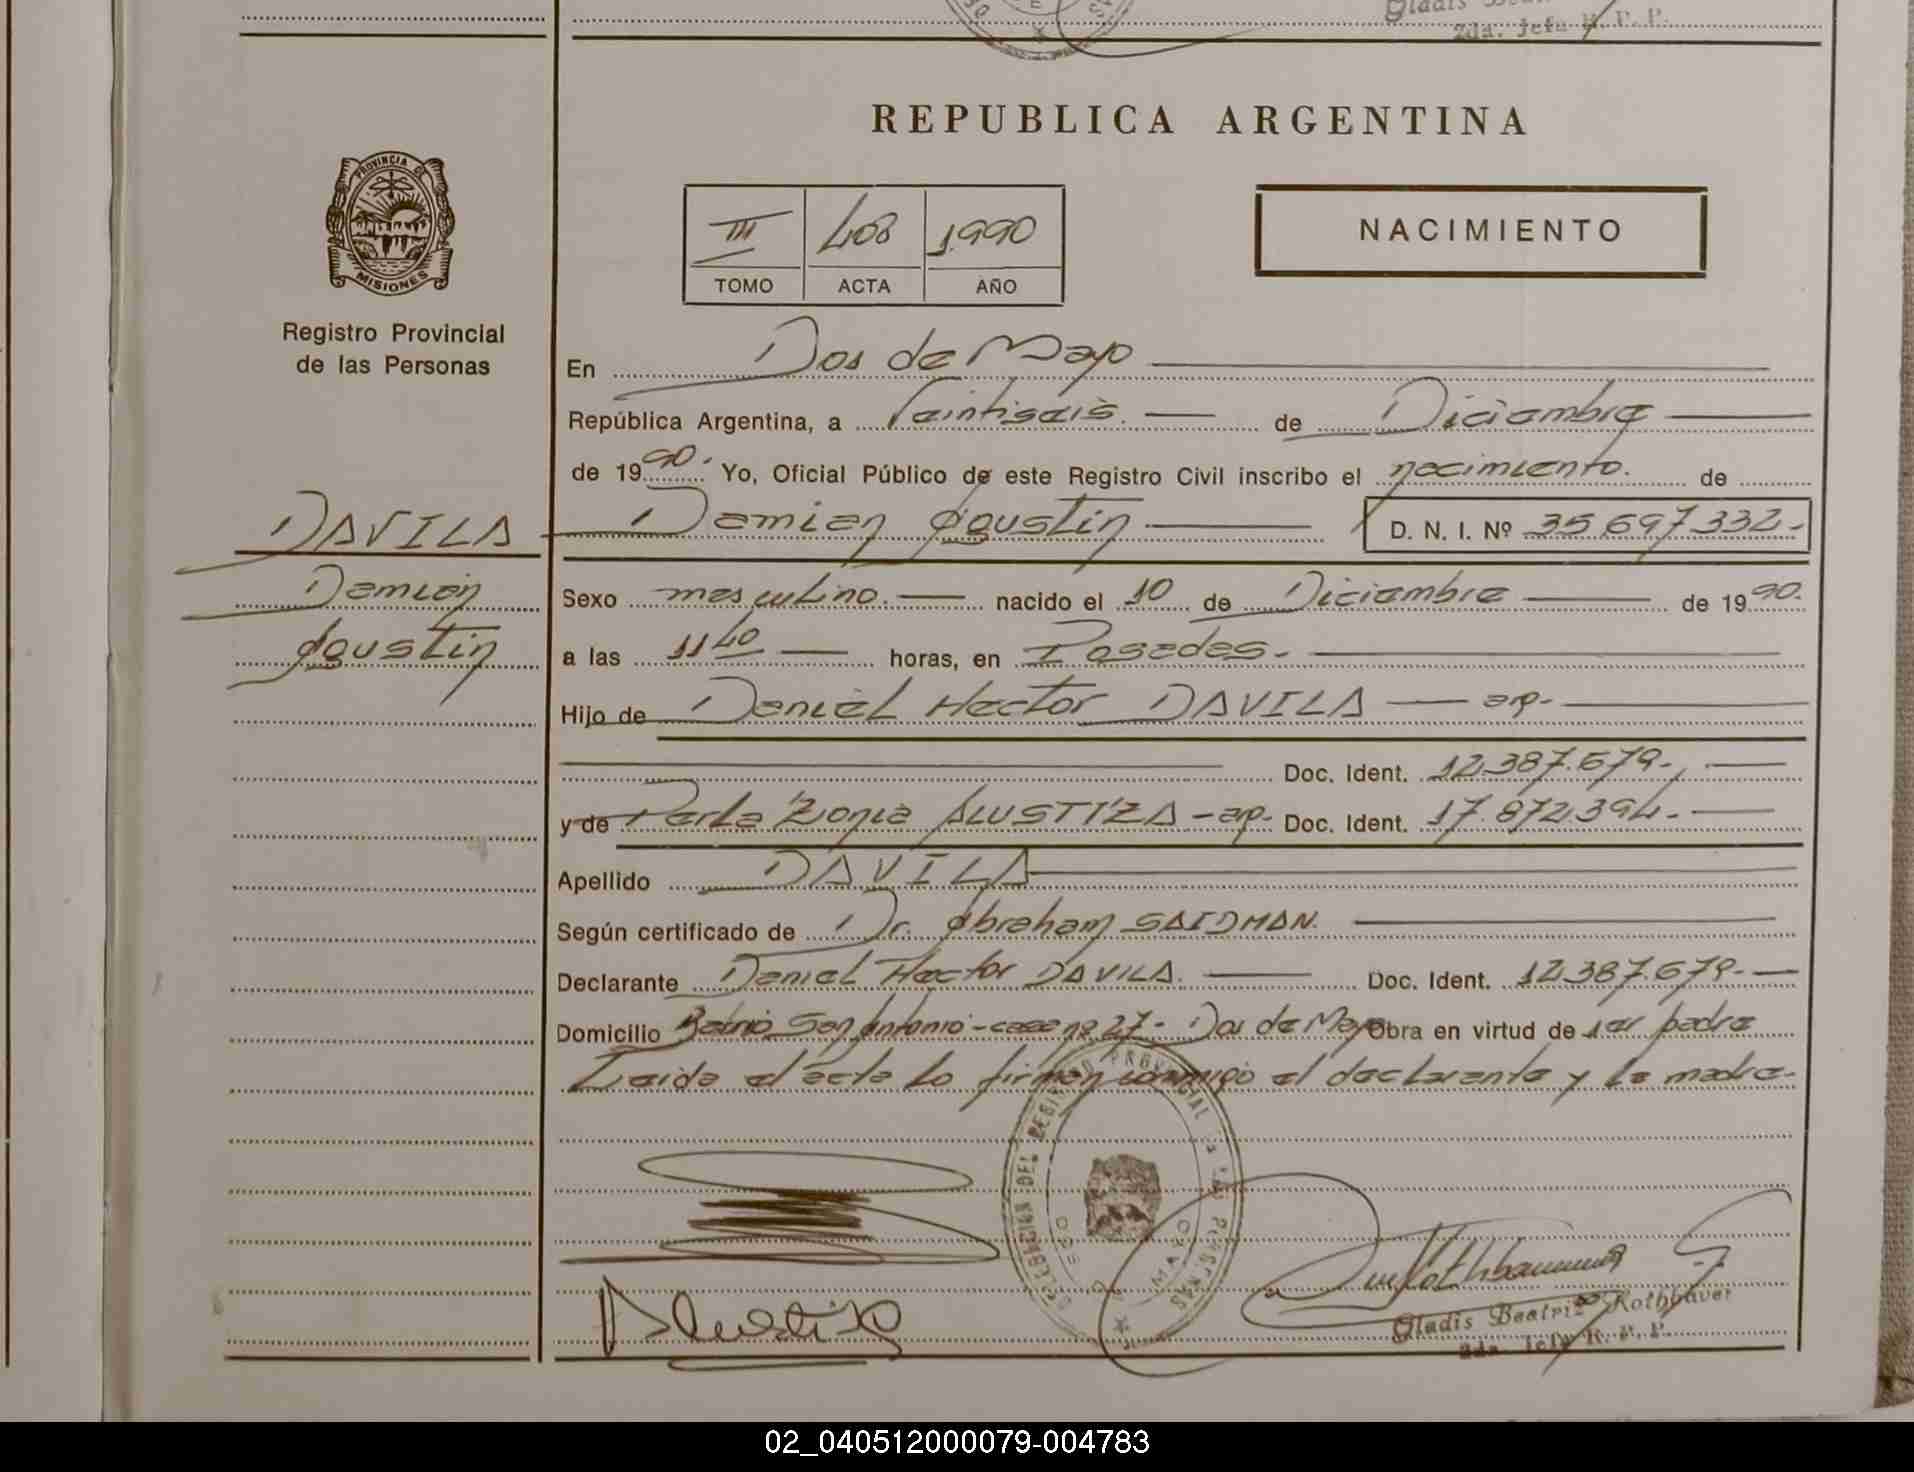 Gladis
2da. Jefa R. P. P.
REPUBLICA ARGENTINA
PROVINCIA DE
MISIONES
Registro Provincial
de las Personas
III 408 1990
TOMO ACTA AÑO
NACIMIENTO
En Dos de Mayo
República Argentina, a Veintiseis de Diciembre
de 1990. Yo, Oficial Público de este Registro Civil inscribo el nacimiento. de
DAVILA Damian Agustin D. N. I. Nº 35.697.332.-
Damian
Agustin
Sexo masculino. nacido el 10 de Diciembre de 1990.
a las 11 40 horas, en Posadas.
Hijo de Daniel Hector DAVILA ap.
Doc. Ident. 12.387.679.
y de Perla Zonia ALUSTIZA - ap. Doc. Ident. 17.872.394.
Apellido DAVILA
Según certificado de Dr. Abraham SAIDMAN.
Declarante Daniel Hector DAVILA. Doc. Ident. 12.387.679.
Domicilio Barrio San Antonio - casa nº 27 - Dos de Mayo Obra en virtud de ser padre
Leida el acta lo firman conmigo el declarante y la madre.
DELEGACION DEL REGISTRO PROVINCIAL DE LAS PERSONAS
DOS DE MAYO
Alustiza
Gladis Beatriz Rothbauer
2da. Jefa R. P. P.
02_040512000079-004783